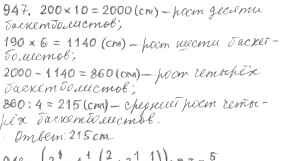 947. 200×10=2000(см)–рост десяти
баскетболистов;
190 × 6 = 1140 (см) – рост шести баскет-
болистов;
2000 - 1140 = 860 (см) – рост четырёх
баскетболистов;
860 : 4 = 215 (см) – средний рост четы-
рёх баскетболистов.
Ответ: 215 см.